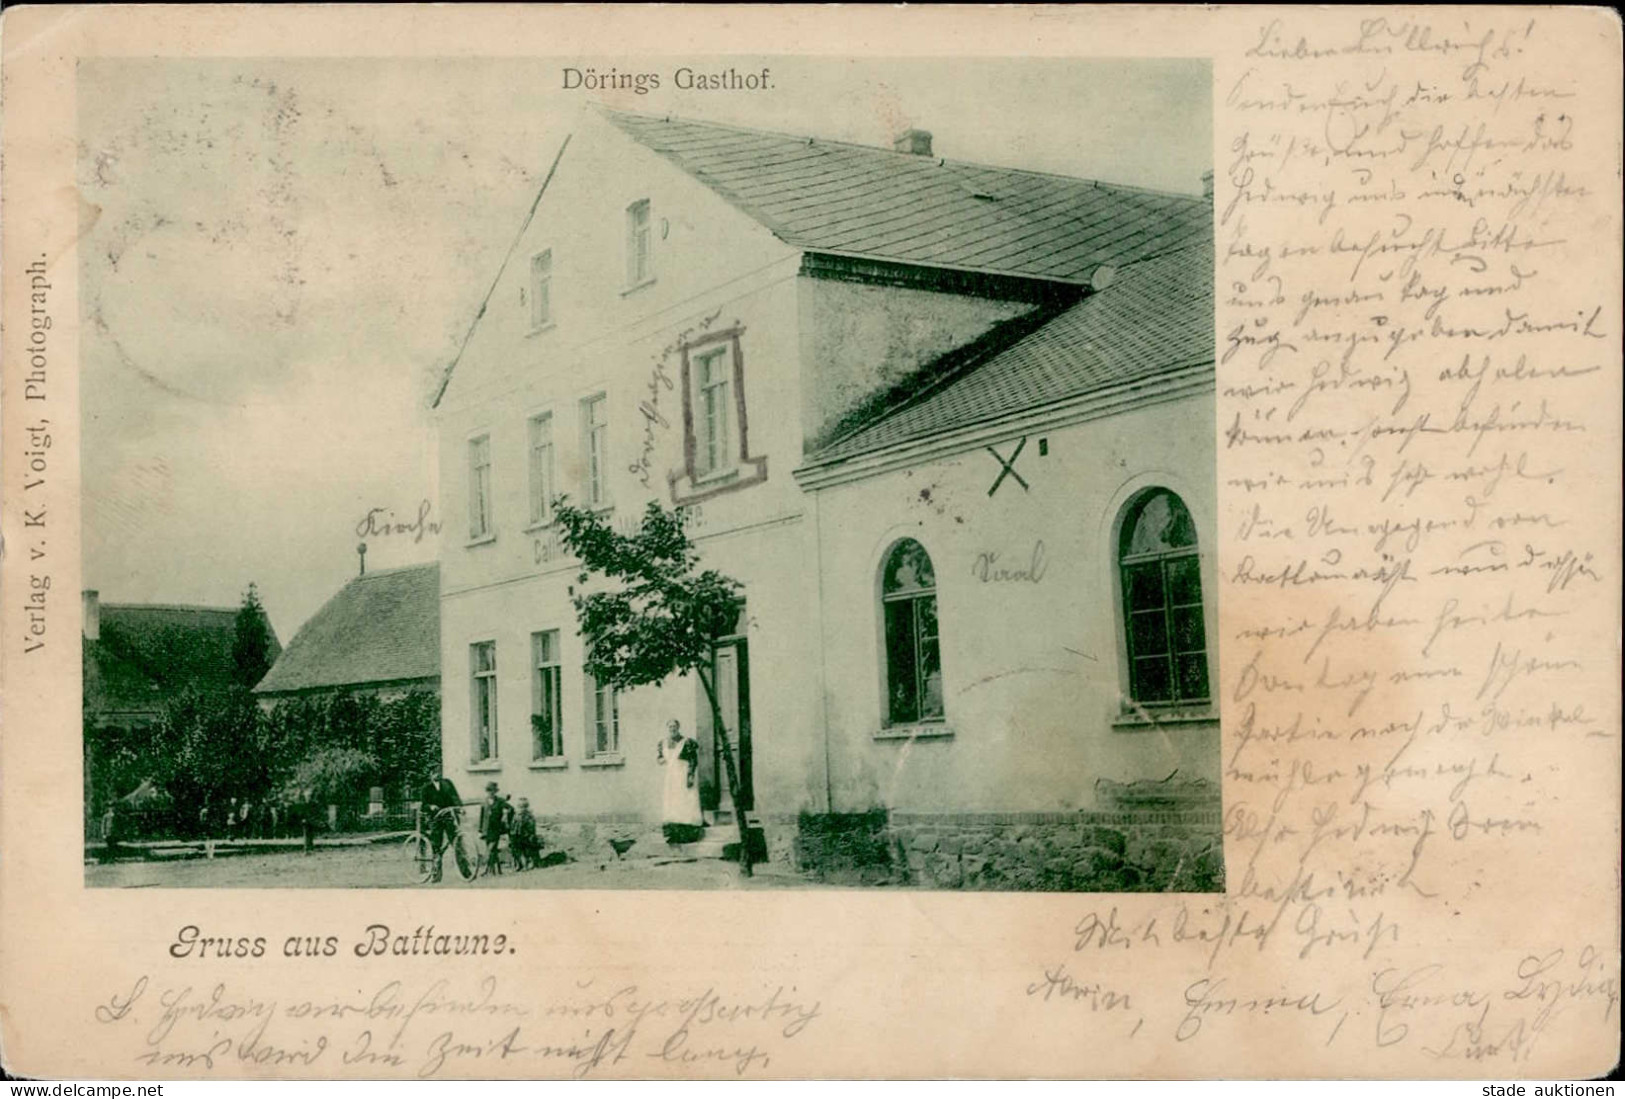 Dörings Gasthof.
Verlag v. K. Voigt, Photograph.
Kirche
Saal
Gruss aus Battaune.
Lieber Bullrich's!
Senden Euch die besten
Grüße, und hoffen das
Hedwig uns in nächsten
Tagen besucht. Bitte
uns genau Tag und
Zug anzugeben damit
wir Hedwig abholen
können, sonst befinden
wir uns sehr wohl.
Die Umgegend von
Battaune ist
wir haben heute
Sonntag eine schöne
Partie nach der Winkel-
mühle gemacht.
Also Hedwig
bestimmt
Mit besten Gruß
Emma, Erna, Lydia,
Curt.
L. Hedwig wir befinden uns großartig
uns wird die Zeit nicht lang.
stade auktionen
www.delcampe.net